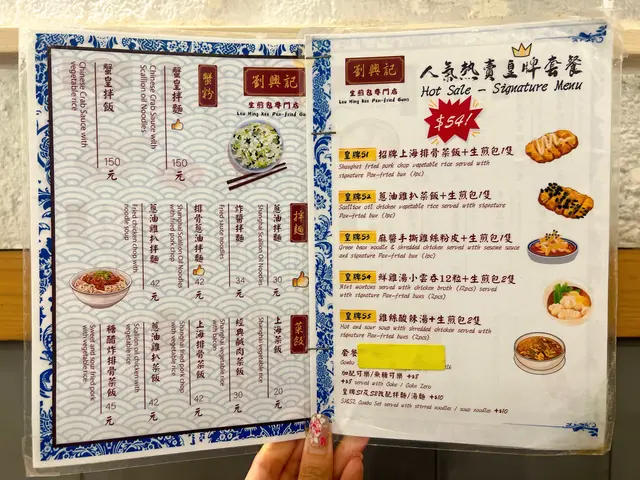 劉興記
生煎包專門店
Lau Hing Kee Pan-fried Buns
蟹粉
蟹皇拌麵
Chinese Crab Sauce with
Scallion Oil Noodles
150
元
蟹皇拌飯
Chinese Crab Sauce with
vegetable rice
150
元
拌麵
葱油拌麵
Shanghai Scallion Oil Noodles
30
元
炸醬拌麵
Fried sauce noodles
34
元
排骨葱油拌麵
Shanghai Scallion Oil Noodles
with fried pork chop
42
元
葱油雞扒拌麵
Fried chicken chop with
noodle soup
42
元
菜飯
上海菜飯
Shanghai vegetable rice
20
元
經典鹹肉菜飯
Shanghai vegetable rice
with bacon
30
元
上海排骨菜飯
Shanghai fried pork chop
with vegetable rice
42
元
葱油雞扒菜飯
Scallion oil chicken with
vegetable rice
42
元
糖醋炸排骨菜飯
Sweet and sour fried pork
with vegetable rice
45
元
劉興記
生煎包專門店
Lau Hing Kee Pan-fried Buns
人氣熱賣皇牌套餐
Hot Sale - Signature Menu
$54!
皇牌S1 招牌上海排骨菜飯+生煎包1隻
Shanghai fried pork chop vegetable rice served with
signature Pan-fried bun (1pc)
皇牌S2 葱油雞扒菜飯+生煎包1隻
Scallion oil chicken vegetable rice served with signature
Pan-fried bun (1pc)
皇牌S3 麻醬手撕雞絲粉皮+生煎包1隻
Green bean noodle & shredded chicken with sesame sauce
and signature Pan-fried bun (1pc)
皇牌S4 鮮雞湯小雲吞12粒+生煎包2隻
Mini wontons served with chicken broth (12pcs) served
with signature Pan-fried buns (2pcs)
皇牌S5 雞絲酸辣湯+生煎包2隻
Hot and sour soup with shredded chicken served with
signature Pan-fried buns (2pcs)
套餐
Combo
加配可樂/無糖可樂 +$8
+$8 served with Coke / Coke Zero
皇牌S1及S2改配拌麵/湯麵 +$10
S1&S2 Combo Set served with stirred noodles / soup noodles +$10